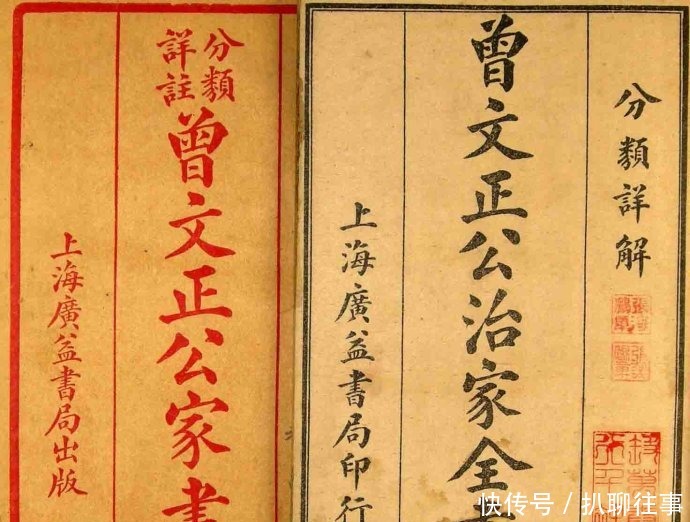 分類
詳註
曾文正公家書
上海廣益書局出版
分類詳解
曾文正公治家全
上海廣益書局印行
快传号／扒聊往事